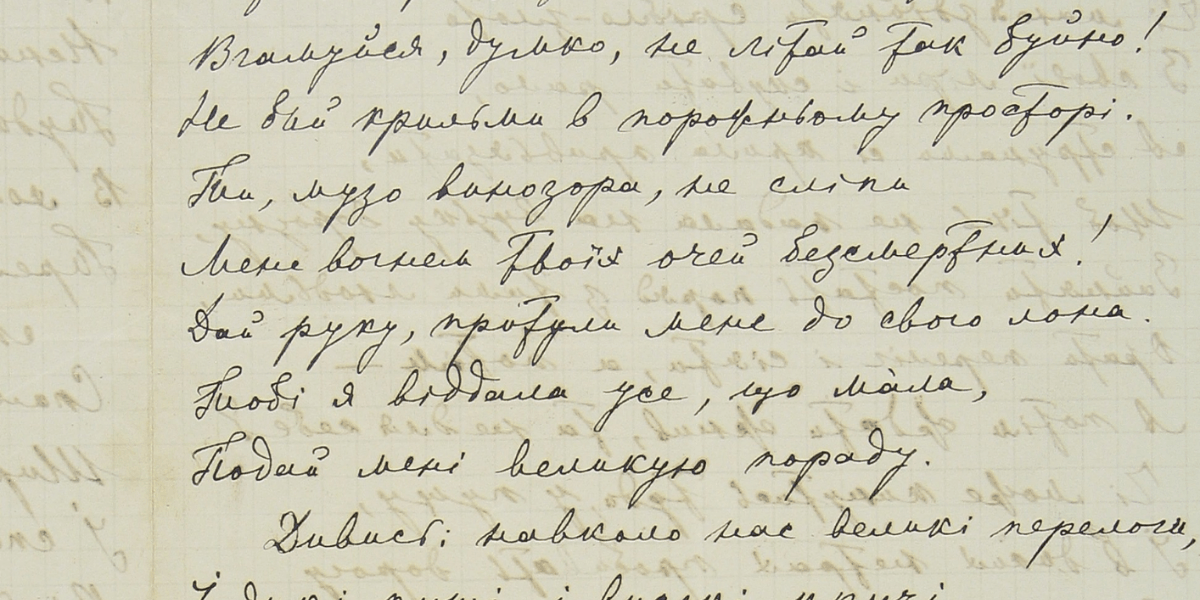 Вгамуйся, думко, не літай так буйно!
Не бий крильми в порожньому просторі.
Ти, музо винозора, не сліпи
Мене вогнем твоїх очей безсмертних!
Дай руку, притули мене до свого лона.
Тобі я віддала усе, що мала,
Подай мені великую пораду.
Дивись: навколо нас великі перелоги,